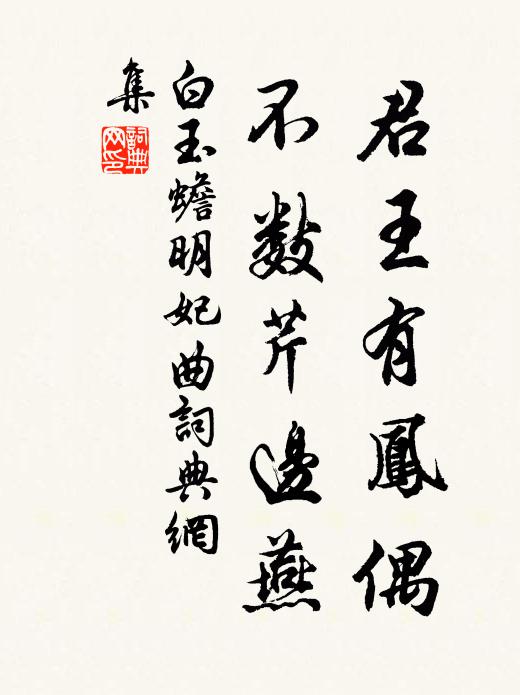 君王有鳳偶
不數芹邊燕
白玉蟾明妃曲詞典網
集
詞典網印